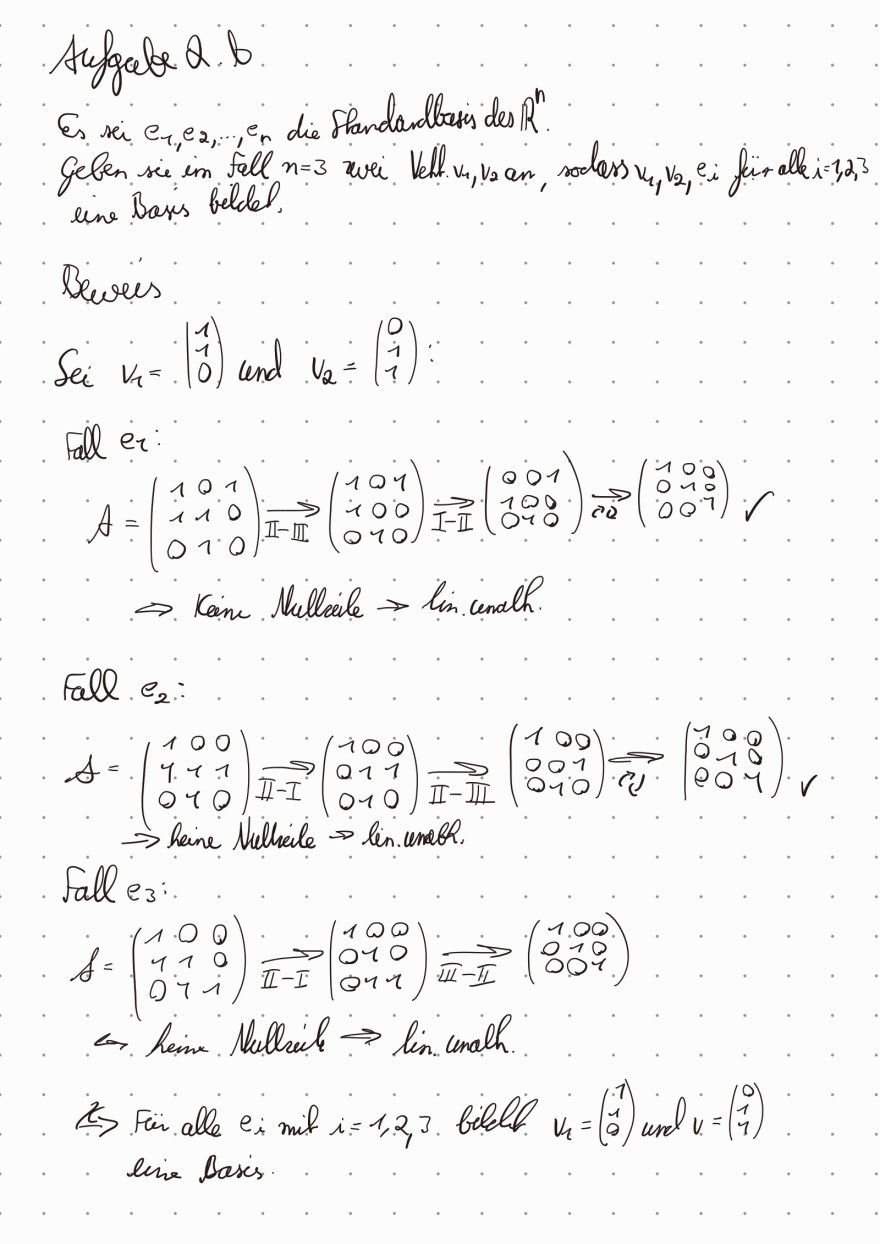 Aufgabe 2.b
Es sei e₁,e₂,...,eₙ die Standardbasis des ℝⁿ.
Geben sie im Fall n=3 zwei Vekt. v₁,v₂ an, sodass v₁,v₂,eᵢ für alle i=1,2,3
eine Basis bildet.
Beweis
Sei v₁ = (1 1 0) und v₂ = (0 1 1) :
Fall e₁:
A = (1 0 1; 1 1 0; 0 1 0) → II-III (1 0 1; 1 0 0; 0 1 0) → I-II (0 0 1; 1 0 0; 0 1 0) → (1 0 0; 0 1 0; 0 0 1) ✓
⇒ Keine Nullzeile → lin. unabh.
Fall e₂:
A = (1 0 0; 1 1 1; 0 1 0) → II-I (1 0 0; 0 1 1; 0 1 0) → II-III (1 0 0; 0 0 1; 0 1 0) → (1 0 0; 0 1 0; 0 0 1) ✓
⇒ keine Nullzeile ⇒ lin. unabh.
Fall e₃:
A = (1 0 0; 1 1 0; 0 1 1) → II-I (1 0 0; 0 1 0; 0 1 1) → III-II (1 0 0; 0 1 0; 0 0 1)
keine Nullzeile ⇒ lin. unabh.
Für alle eᵢ mit i = 1,2,3 bildet v₁ = (1 1 0) und v = (0 1 1)
eine Basis.